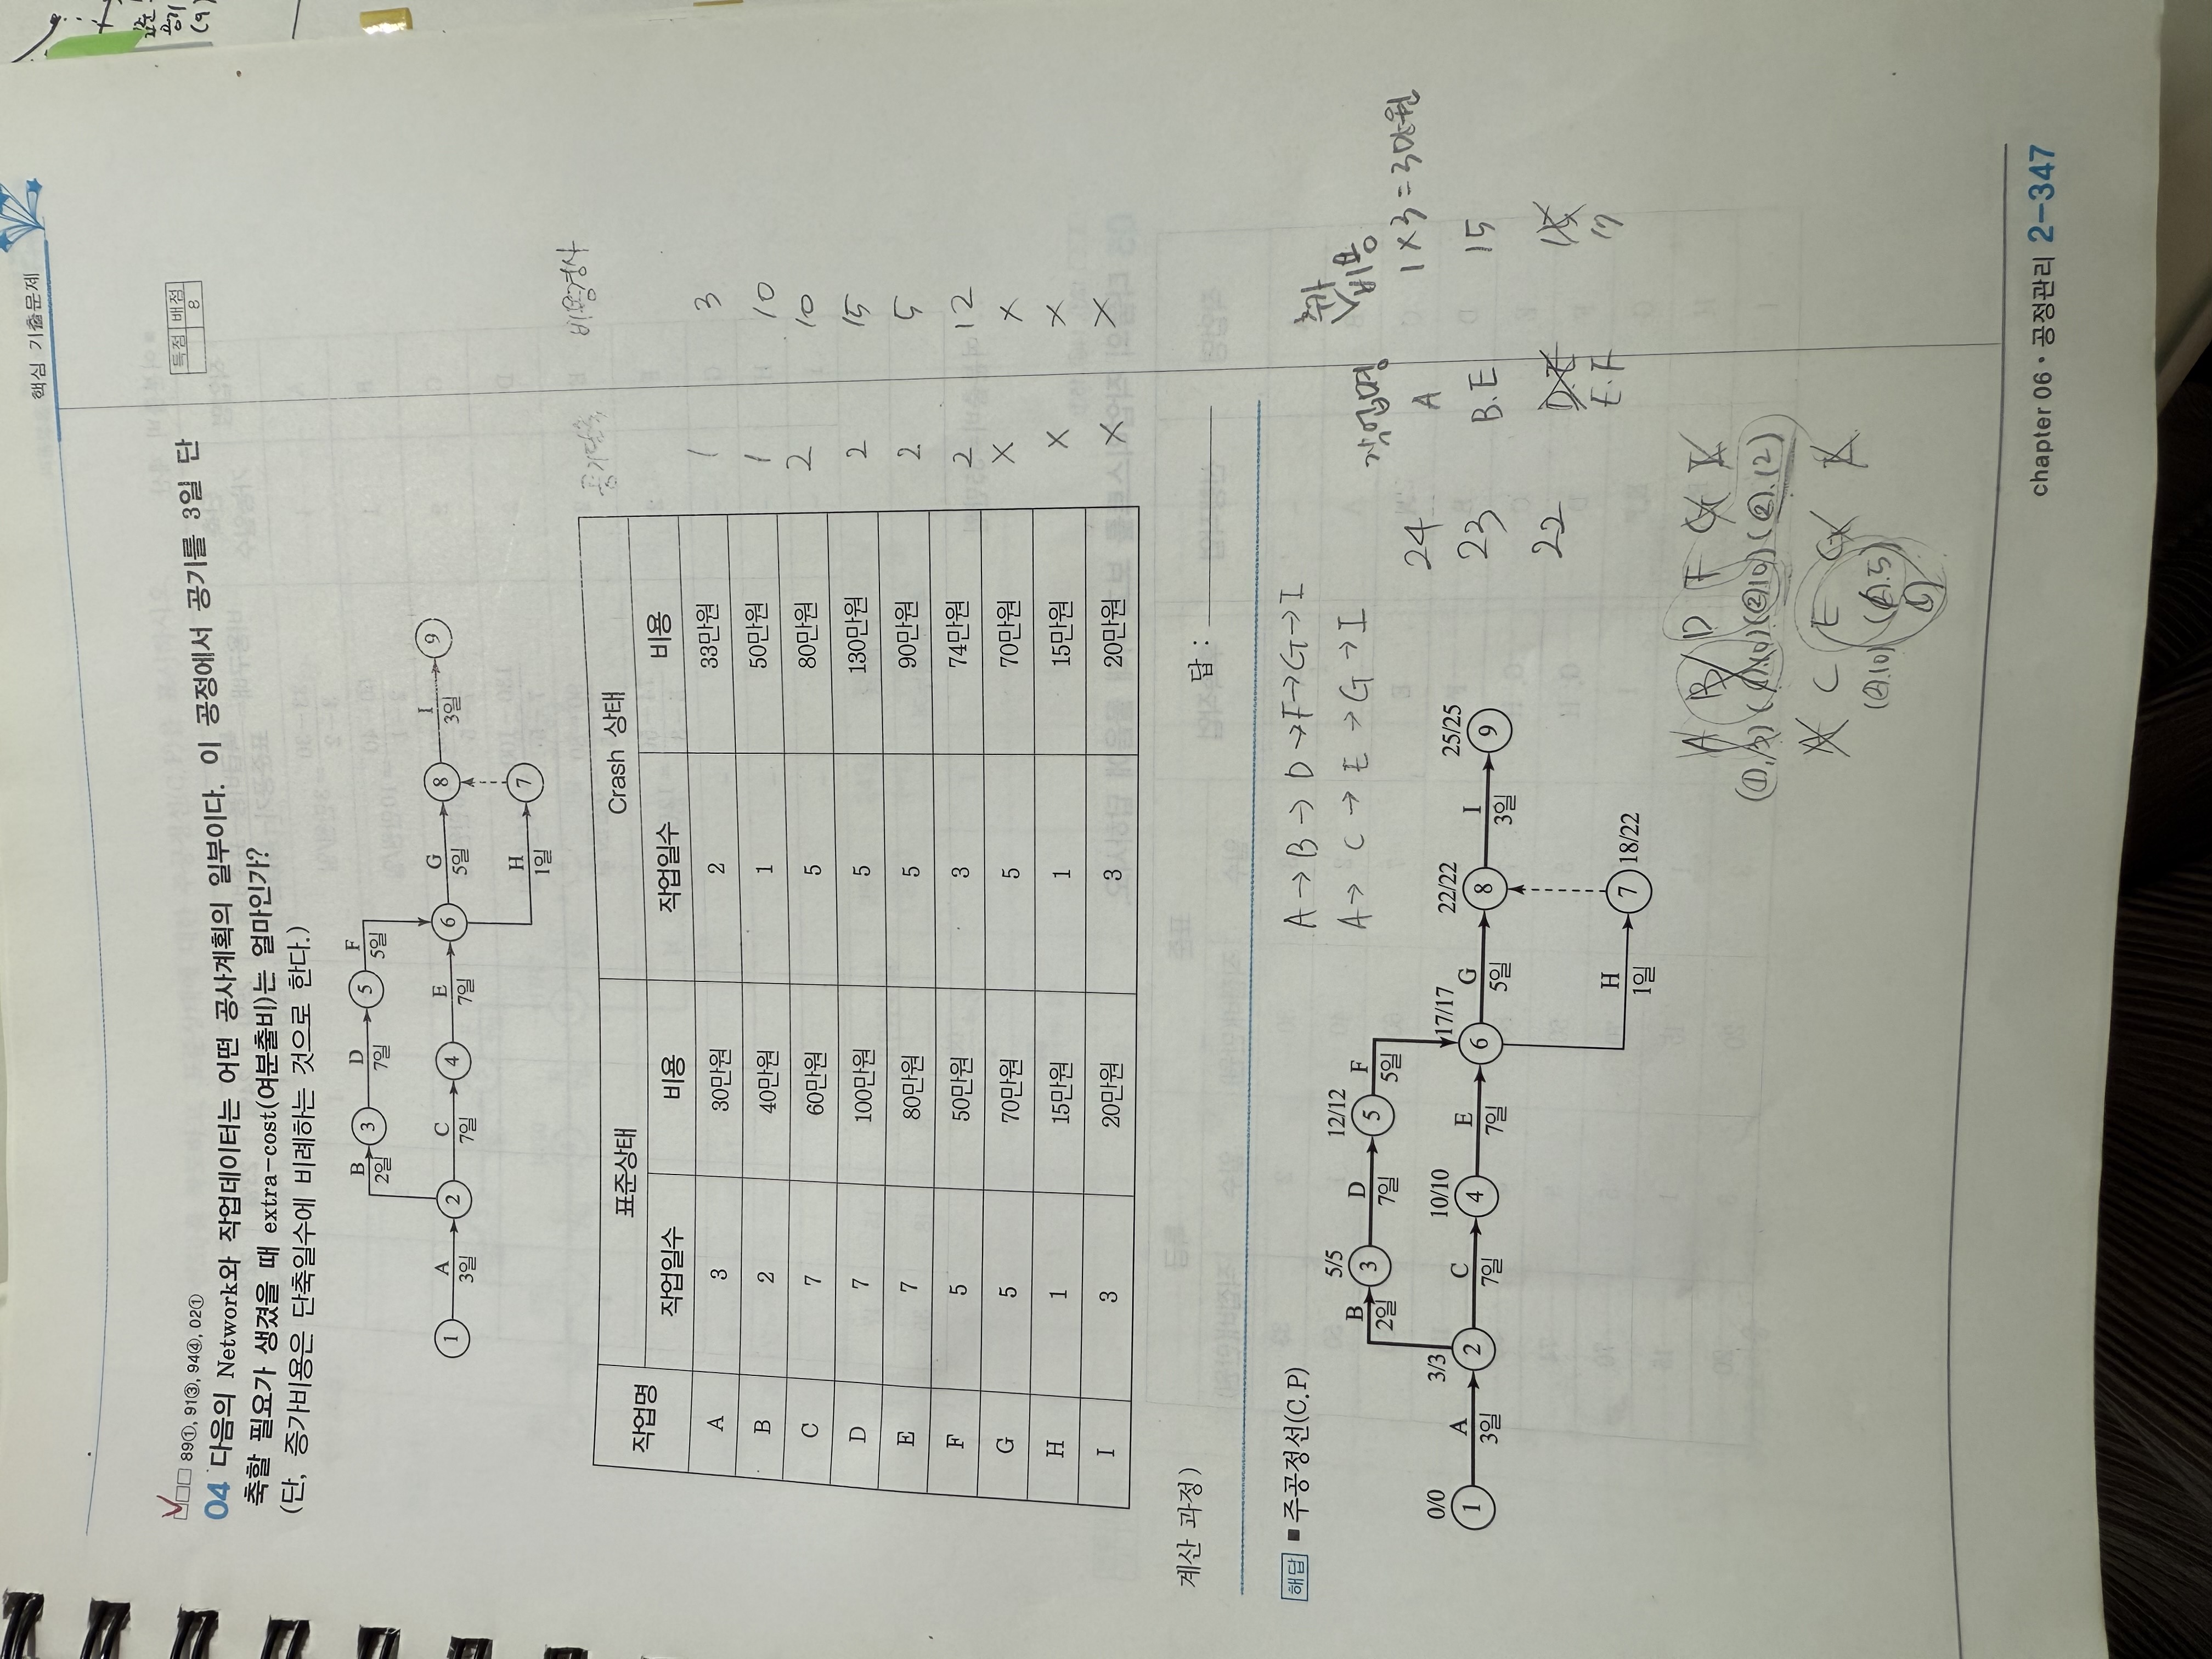 핵심 기출문제
득점 배점
8
89①, 91③, 94④, 02①
04 다음의 Network와 작업데이터는 어떤 공사계획의 일부이다. 이 공정에서 공기를 3일 단
축할 필요가 생겼을 때 extra-cost(여분출비)는 얼마인가?
(단, 증가비용은 단축일수에 비례하는 것으로 한다.)
B 2일 D 7일 F 5일
3 5
A 3일 C 7일 E 7일 G 5일 I 3일
1 2 4 6 8 9
H 1일
7
작업명 표준상태 Crash 상태
작업일수 비용 작업일수 비용 공기단축 비용경사
A 3 30만원 2 33만원 1 3
B 2 40만원 1 50만원 1 10
C 7 60만원 5 80만원 2 10
D 7 100만원 5 130만원 2 15
E 7 80만원 5 90만원 2 5
F 5 50만원 3 74만원 2 12
G 5 70만원 5 70만원 X X
H 1 15만원 1 15만원 X X
I 3 20만원 3 20만원 X X
계산 과정) 답 :
해답 ■ 주공정선(C.P)
A→B→D→F→G→I
A→C→E→G→I
0/0 3/3 5/5 12/12 10/10 17/17 22/22 25/25 18/22
B 2일 D 7일 F 5일
3 5
A 3일 C 7일 E 7일 G 5일 I 3일
1 2 4 6 8 9
H 1일
7
작업명 추가비용
24 A 1×3=3만원
23 B.E 15
22 D.E
E.F 17
A B D F G I
(①,3) (1.10) (②10) (②.12)
A C E G I
(②.10) (②.5)
chapter 06 · 공정관리 2-347